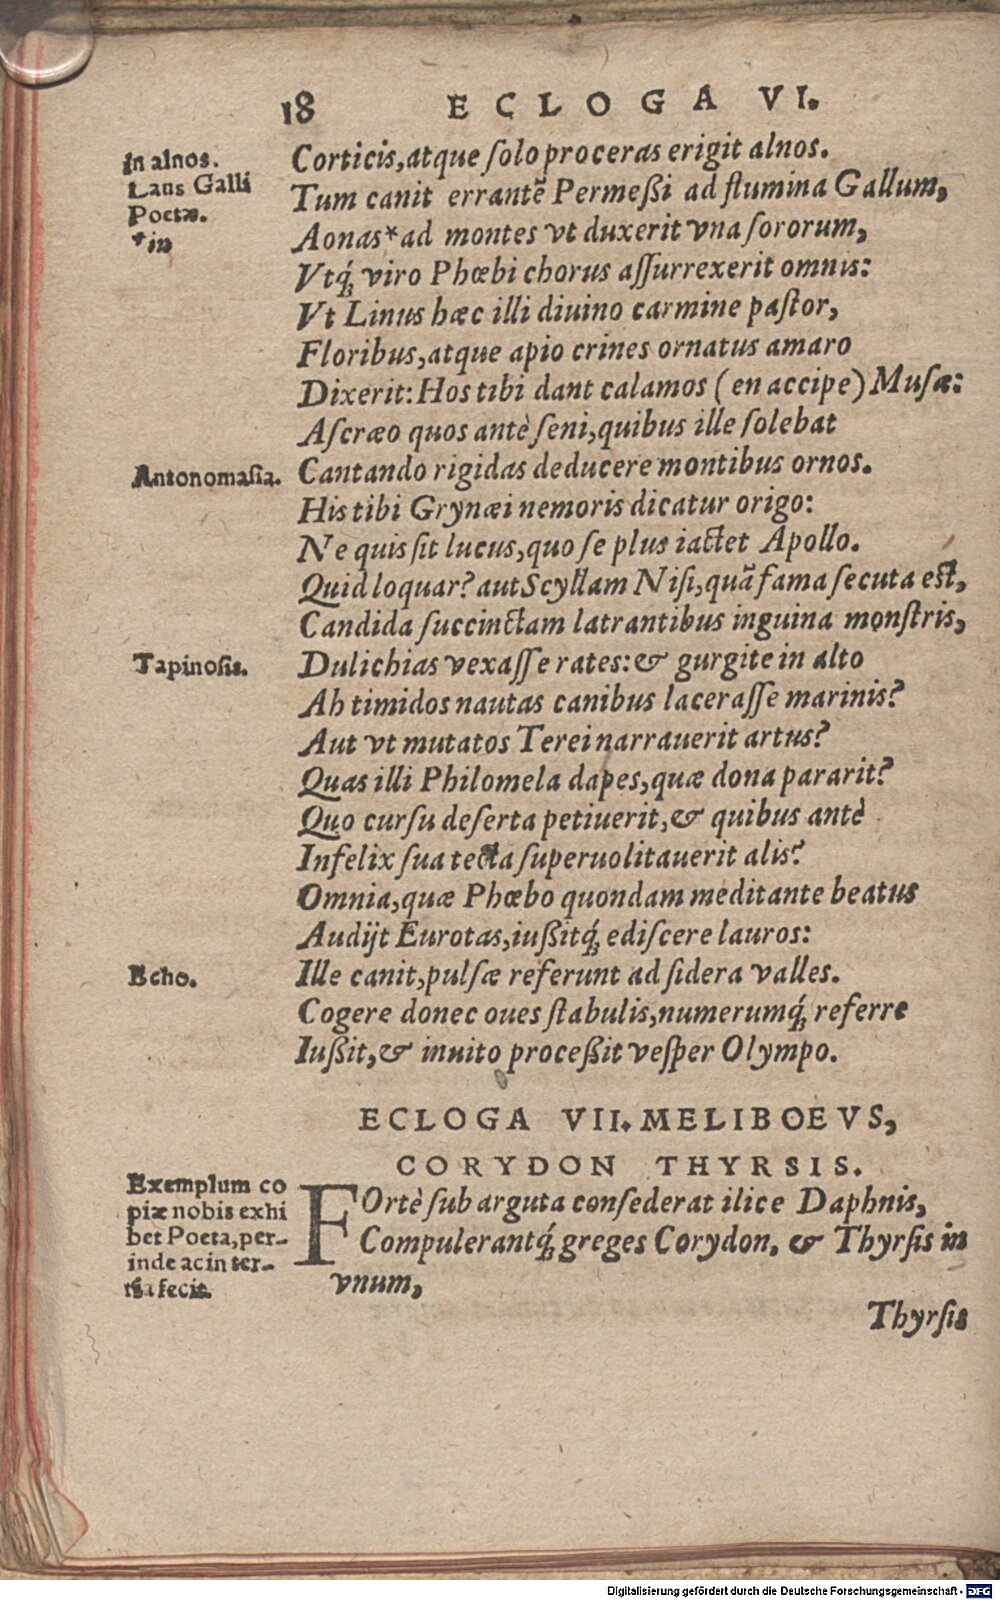 18 ECLOGA VI.
in alnos.
Laus Galli
Poetæ.
*in
Corticis,atque ſolo proceras erigit alnos.
Tum canit errantẽ Permeßi ad flumina Gallum,
Aonas*ad montes vt duxerit vna ſororum,
Vtq́; viro Phœbi chorus aſſurrexerit omnis:
Vt Linus hæc illi diuino carmine paſtor,
Floribus,atque apio crines ornatus amaro
Dixerit:Hos tibi dant calamos (en accipe) Muſæ:
Aſcræo quos antè ſeni,quibus ille ſolebat
Antonomaſia.
Cantando rigidas deducere montibus ornos.
His tibi Grynæi nemoris dicatur origo:
Ne quis ſit lucus,quo ſe plus iactet Apollo.
Quid loquar? aut Scyllam Niſi,quã fama ſecuta eſt,
Candida ſuccinctam latrantibus inguina monſtris,
Tapinoſis.
Dulichias vexaſſe rates:& gurgite in alto
Ah timidos nautas canibus laceraſſe marinis?
Aut vt mutatos Terei narrauerit artus?
Quas illi Philomela dapes,quæ dona pararit?
Quo curſu deſerta petiuerit,& quibus antè
Infelix ſua tecta ſuperuolitauerit alis?
Omnia,quæ Phœbo quondam meditante beatus
Audijt Eurotas,iußitq́; ediſcere lauros:
Echo.
Ille canit,pulſæ referunt ad ſidera valles.
Cogere donec oues ſtabulis,numerumq́; referre
Iußit,& inuito proceßit veſper Olympo.
ECLOGA VII. MELIBOEVS,
CORYDON THYRSIS.
Exemplum co
piæ nobis exhi
bet Poeta,per-
inde ac in ter-
tia fecit.
FOrtè ſub arguta conſederat ilice Daphnis,
Compulerantq́; greges Corydon, & Thyrſis in
vnum,
Thyrſis
Digitalisierung gefördert durch die Deutsche Forschungsgemeinschaft - DFG